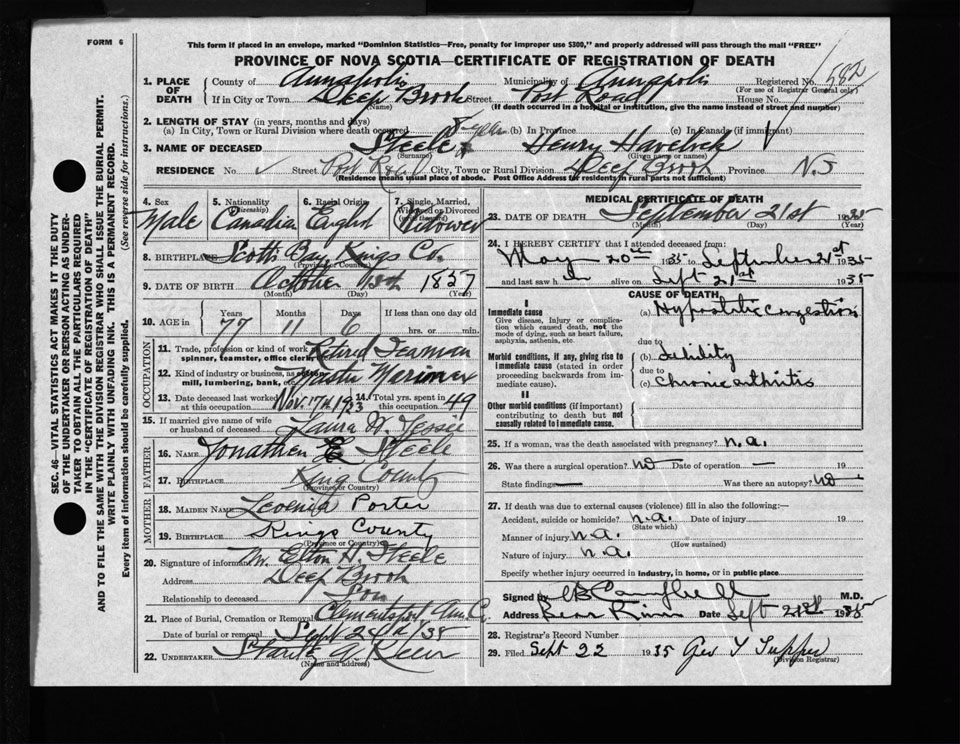 FORM 6
This form if placed in an envelope, marked "Dominion Statistics—Free, penalty for improper use $300," and properly addressed will pass through the mail "FREE"
PROVINCE OF NOVA SCOTIA—CERTIFICATE OF REGISTRATION OF DEATH
1. PLACE OF DEATH
County of Annapolis Municipality of Annapolis Registered No. 582
(For use of Registrar General only)
If in City or Town Deep Brook Street Post Road House No.
(Name) (If death occurred in a hospital or institution, give the name instead of street and number)
2. LENGTH OF STAY (in years, months and days)
(a) In City, Town or Rural Division where death occurred 8 (b) In Province (c) In Canada (if immigrant)
3. NAME OF DECEASED Steele Henry Havelock
(Surname) (Given name or names)
RESIDENCE No. Street Post Road City, Town or Rural Division Deep Brook Province N.S
(Residence means usual place of abode. Post Office Address for residents in rural parts not sufficient)
4. Sex Male
5. Nationality (Citizenship) Canadian
6. Racial Origin English
7. Single, Married, Widowed or Divorced Widower
8. BIRTHPLACE Scotts Bay, Kings Co.
(Province or Country)
9. DATE OF BIRTH October 1857
(Month) (Day) (Year)
10. AGE in Years 77 Months 11 Days 6 If less than one day old hrs. or min.
OCCUPATION
11. Trade, profession or kind of work as spinner, teamster, office clerk, Retired Seaman
12. Kind of industry or business, as cotton mill, lumbering, bank, etc. Master Mariner
13. Date deceased last worked at this occupation Nov. 17th, 1933
14. Total yrs. spent in this occupation 49
15. If married give name of wife or husband of deceased Laura
FATHER
16. NAME Jonathen E Steele
17. BIRTHPLACE King County
(Province or Country)
MOTHER
18. MAIDEN NAME Porter
19. BIRTHPLACE Kings County
(Province or Country)
20. Signature of informant Mr. Elton H. Steele
Address Deep Brook
Relationship to deceased Son
21. Place of Burial, Cremation or Removal Clementsport, Ann. C.
Date of burial or removal Sept 24th/35
22. UNDERTAKER
(Name and address)
MEDICAL CERTIFICATE OF DEATH
23. DATE OF DEATH September 21st 1935
(Month) (Day) (Year)
24. I HEREBY CERTIFY that I attended deceased from:
May 20th 1935 to September 21st 1935
and last saw h alive on Sept 21st 1935
CAUSE OF DEATH
I
Immediate cause
Give disease, injury or complication which caused death, not the mode of dying, such as heart failure, asphyxia, asthenia, etc
(a) Hypostatic congestion
due to
Morbid conditions, if any, giving rise to immediate cause (stated in order proceeding backwards from immediate cause).
(b) Debility
due to
(c) Chronic arthritis
II
Other morbid conditions (if important) contributing to death but not causally related to immediate cause.
25. If a woman, was the death associated with pregnancy? n.a.
26. Was there a surgical operation? no Date of operation — 19
State findings — Was there an autopsy? no
27. If death was due to external causes (violence) fill in also the following:—
Accident, suicide or homicide? n.a. Date of injury 19
(State which)
Manner of injury n.a.
(How sustained)
Nature of injury n.a.
Specify whether injury occurred in industry, in home, or in public place
Signed by Campbell M.D.
Address Bear River Date Sept 1935
28. Registrar's Record Number
29. Filed Sept 22 1935 Geo Y Tupper
(Division Registrar)
SEC. 46—VITAL STATISTICS ACT MAKES IT THE DUTY
OF THE UNDERTAKER OR PERSON ACTING AS UNDER-
TAKER TO OBTAIN ALL THE PARTICULARS REQUIRED
IN THE "CERTIFICATE OF REGISTRATION OF DEATH"
AND TO FILE THE SAME WITH THE DIVISION REGISTRAR WHO SHALL ISSUE THE BURIAL PERMIT.
WRITE PLAINLY WITH UNFADING INK. THIS IS A PERMANENT RECORD.
Every item of information should be carefully supplied. (See reverse side for instructions.)